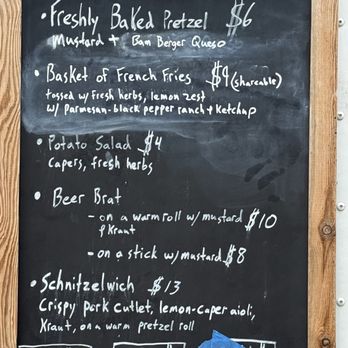 • Freshly Baked Pretzel $6
Mustard + Bam Berger Queso
• Basket of French Fries $9 (shareable)
tossed w/ fresh herbs, lemon zest
w/ parmesan-black pepper ranch + Ketchup
• Potato Salad $4
Capers, fresh herbs
• Beer Brat
- on a warm roll w/ mustard $10
& Kraut
- on a stick w/ mustard $8
• Schnitzelwich $13
Crispy pork cutlet, lemon-caper aioli,
Kraut, on a warm pretzel roll